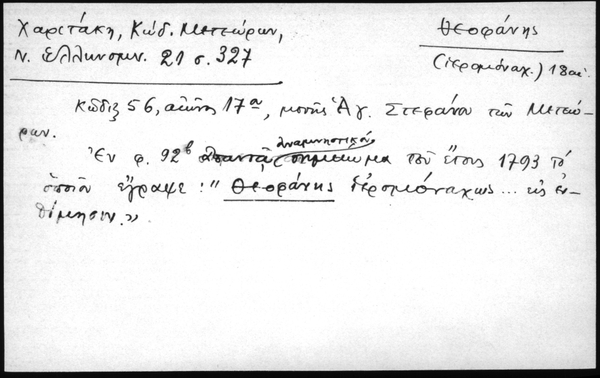 Χαριτάκη, Κώδ. Μετεώρων,
Ν. Ελληνομν. 21 σ. 327
Θεοφάνης
(ἱερομόναχ.) 18 αἰ.
Κώδιξ 56, αἰῶνος 17ου, μονῆς Ἁγ. Στεφάνου τῶν Μετεώ-
ρων.
Ἐν φ. 92β ἀπαντᾷ ἀναμνηστικὸν σημείωμα τοῦ ἔτους 1793 τὸ
ὁποῖον ἔγραψε: "Θεοφάνης ἱερομόναχως... εἰς ἐν-
θύμησιν."